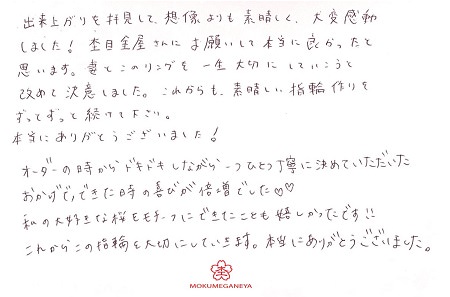 出来上がりを拝見して、想像よりも素晴しく、大変感動
しました！杢目金屋さんにお願いして本当に良かったと
思います。妻とこのリングを一生大切にしていこうと
改めて決意しました。これからも、素晴しい指輪作りを
ずっとずっと続けて下さい。
本当にありがとうございました！
オーダーの時からドキドキしながら一つひとつ丁寧に決めていただいた
おかげで、できた時の喜びが倍増でした♡♡
私の大好きな桜をモチーフにできたことも嬉しかったです!!
これからこの指輪を大切にしていきます。本当にありがとうございました。
MOKUMEGANEYA